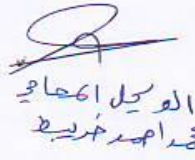 الوكيل المحامي
محمد احمد خريبط